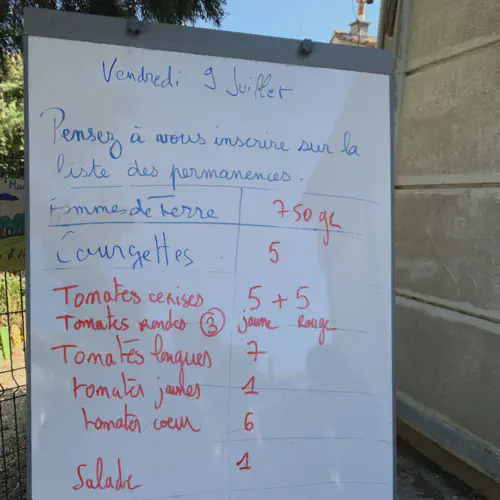 Vendredi 9 Juillet
Pensez à vous inscrire sur la
liste des permanences.
Pommes de Terre 750 gr
Courgettes. 5
Tomates cerises 5 + 5
Tomates rondes ③ jaune Rouge
Tomates longues 7
tomates jaunes 1
tomates coeur 6
Salade 1